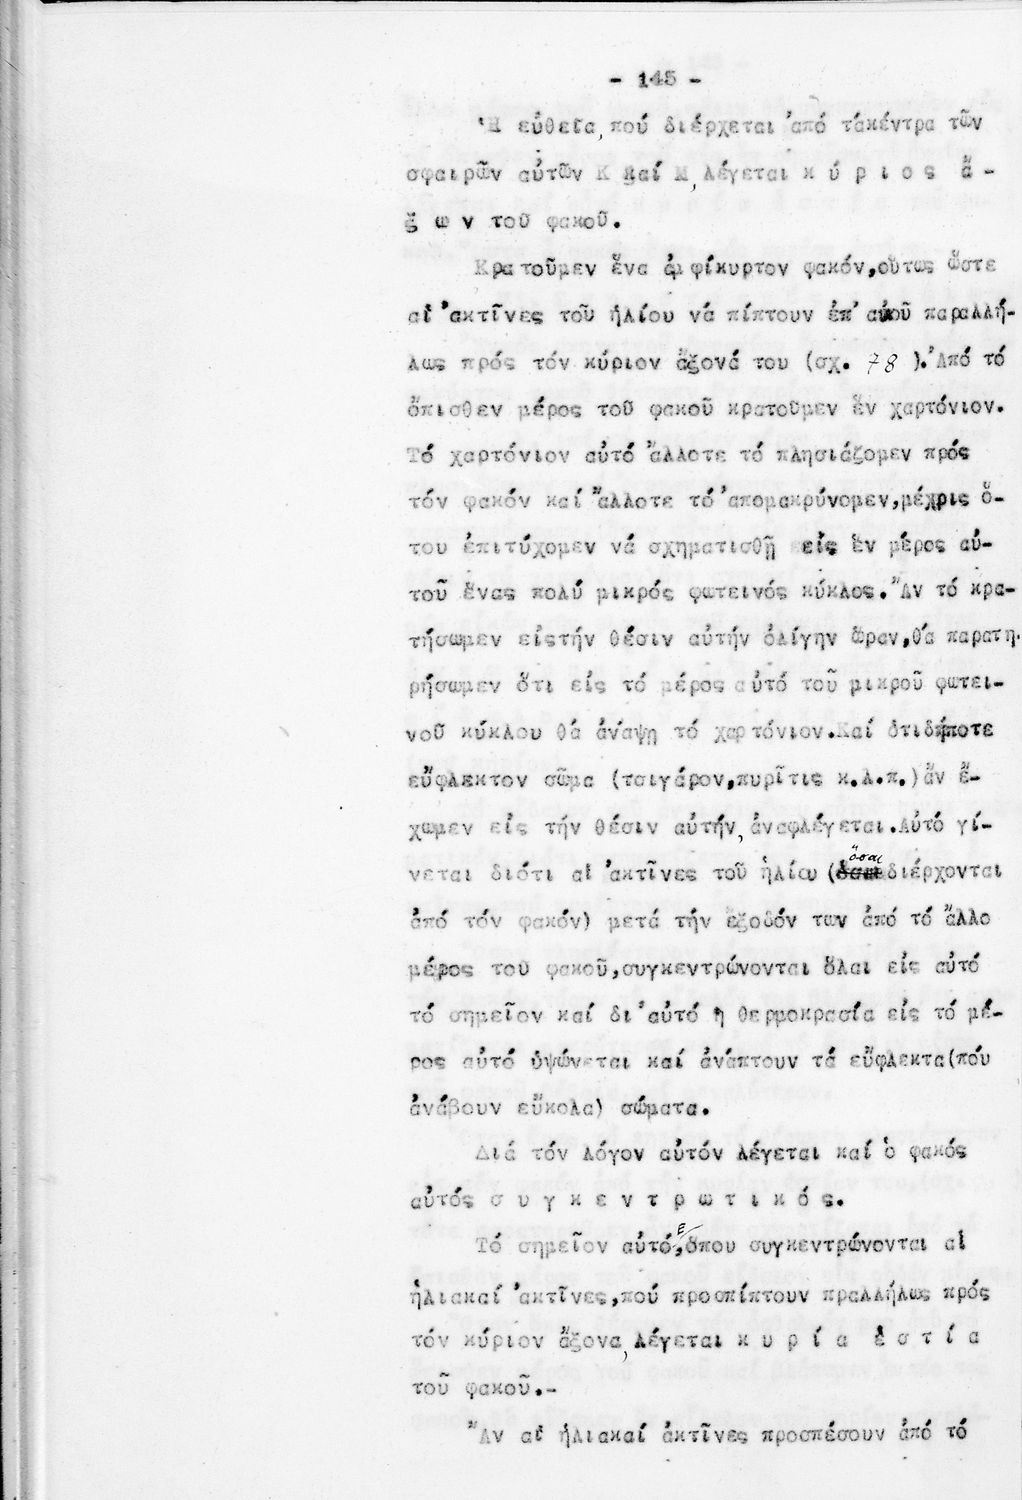 - 145 -
Ἡ εὐθεῖα, πού διέρχεται ἀπό τάκέντρα τῶν
σφαιρῶν αὐτῶν Κ καί Μ, λέγεται κ ύ ρ ι ο ς ἄ -
ξ ω ν τοῦ φακοῦ.
Κρατοῦμεν ἕνα ἀμφίκυρτον φακόν,οὕτως ὥστε
αἱ ἀκτῖνες τοῦ ἡλίου νά πίπτουν ἐπ' αὐοῦ παραλλή-
λως πρός τόν κύριον ἄξονά του (σχ. 78 ).Ἀπό τό
ὄπισθεν μέρος τοῦ φακοῦ κρατοῦμεν ἕν χαρτόνιον.
Τό χαρτόνιον αὐτό ἄλλοτε τό πλησιάζομεν πρός
τόν φακόν καί ἄλλοτε τό ἀπομακρύνομεν,μέχρις ὅ-
του ἐπιτύχομεν νά σχηματισθῇ εἰς ἕν μέρος αὐ-
τοῦ ἕνας πολύ μικρός φωτεινός κύκλος.Ἄν τό κρα-
τήσωμεν εἰςτήν θέσιν αὐτήν ὀλίγην ὥραν,θά παρατη-
ρήσωμεν ὅτι εἰς τό μέρος αὐτό τοῦ μικροῦ φωτει-
νοῦ κύκλου θά ἀνάψῃ τό χαρτόνιον.Καί ὁτιδήποτε
εὔφλεκτον σῶμα (τσιγάρον,πυρῖτις κ.λ.π.)ἄν ἔ-
χωμεν εἰς τήν θέσιν αὐτήν, ἀναφλέγεται.Αὐτό γί-
νεται διότι αἱ ἀκτῖνες τοῦ ἡλίου (ὅσαι διέρχονται
ἀπό τόν φακόν) μετά τήν ἔξοδόν των ἀπό τό ἄλλο
μέρος τοῦ φακοῦ,συγκεντρώνονται ὅλαι εἰς αὐτό
τό σημεῖον καί δι'αὐτό ἡ θερμοκρασία εἰς τό μέ-
ρος αὐτό ὑψώνεται καί ἀνάπτουν τά εὔφλεκτα(πού
ἀνάβουν εὔκολα) σώματα.
Διά τόν λόγον αὐτόν λέγεται καί ὁ φακός
αὐτός σ υ γ κ ε ν τ ρ ω τ ι κ ό ς.
Τό σημεῖον αὐτό,Ε,ὅπου συγκεντρώνονται αἱ
ἡλιακαί ἀκτῖνες,πού προσπίπτουν πραλλήλως πρός
τόν κύριον ἄξονα, λέγεται κ υ ρ ί α ἑ σ τ ί α
τοῦ φακοῦ.-
Ἄν αἱ ἡλιακαί ἀκτῖνες προσπέσουν ἀπό τό